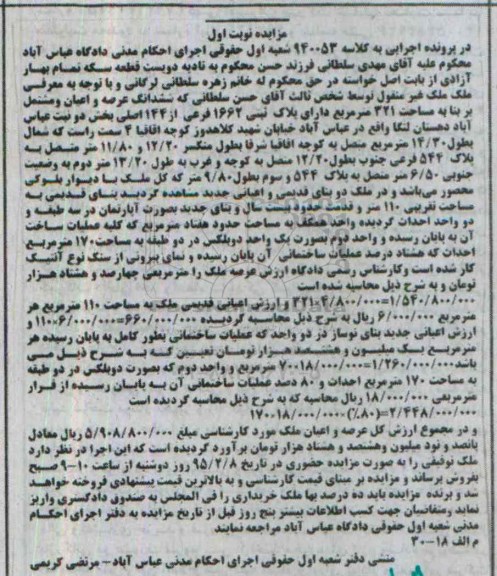 مزایده نوبت اول
در پرونده اجرایی به کلاسه ۹۴۰۰۵۳ شعبه اول حقوقی اجرای احکام مدنی دادگاه عباس آباد
محکوم علیه آقای مهدی سلطانی فرزند حسن محکوم به تادیه دویست قطعه سکه تمام بهار
آزادی از بابت اصل خواسته در حق محکوم له خانم زهره سلطانی لرگانی و با توجه به معرفی
ملک غیر منقول توسط شخص ثالث آقای حسن سلطانی که ششدانگ عرصه و اعیان ومشتمل
بر بنا به مساحت ۳۲۱ مترمربع دارای پلاک ثبتی ۱۶۶۲ فرعی از ۱۴۴ اصلی بخش دو ثبت عباس
آباد دهستان لنگا واقع در عباس آباد خیابان شهید کلاهدوز کوچه اقاقیا ۴ سمت راست که شمال
بطول ۱۴/۳۰ مترمربع متصل به کوچه اقاقیا شرقا بطول منکسر ۱۲/۲۰ و ۱۱/۸۰ متر متصل به
پلاک ۵۴۴ فرعی جنوب بطول ۱۲/۲۰ متصل به کوچه و غرب به طول ۱۳/۲۰ متر دوم به وضعیت
جنوبی ۶/۵۰ متر متصل به پلاک ۵۴۴ و سوم بطول ۹/۸۰ متر که کل ملک با دیوار بلوکی
محصور می‌باشد و در ملک دو بنای قدیمی و اعیانی جدید مشاهده گردید بنای قدیمی به
مساحت تقریبی ۱۱۰ متر و قدمت حدود بیست سال و بنای جدید بصورت آپارتمان در سه طبقه و
دو واحد احداث گردیده واحد همکف به مساحت حدود هفتاد مترمربع که کلیه عملیات ساخت
آن به پایان رسده و واحد دوم بصورت یک واحد دوبلکس در دو طبقه به مساحت ۱۷۰ مترمربع
احداث که هشتاد درصد عملیات ساختمانی آن پایان رسیده و نمای بیرونی از سنگ نوع آنتیک
کار شده است وکارشناس رسمی دادگاه ارزش عرصه ملک را مترمربعی چهارصد و هشتاد هزار
تومان و به شرح ذیل محاسبه شده است
۳۲۱*۴/۸۰۰/۰۰۰=۱/۵۴۰/۸۰۰/۰۰۰ و ارزش اعیانی قدیمی ملک به مساحت ۱۱۰ مترمربع هر
مترمربع ۶/۰۰۰/۰۰۰ ریال به شرح ذیل محاسبه گردیده ۱۱۰*۶/۰۰۰/۰۰۰=۶۶۰/۰۰۰/۰۰۰ و
ارزش اعیانی جدید بنای نوساز در دو واحد که عملیات ساختمانی بطور کامل به پایان رسیده هر
مترمربع یک میلیون و هشتصد هزار تومان تعیین که به شرح ذیل می
باشد ۷۰*۱۸/۰۰۰/۰۰۰=۱/۲۶۰/۰۰۰/۰۰۰ مترمربع و واحد دوم که بصورت دوبلکس در دو طبقه
به مساحت ۱۷۰ مترمربع احداث و ۸۰ دصد عملیات ساختمانی آن به پایان رسیده از قرار
مترمربعی ۱۸/۰۰۰/۰۰۰ ریال محاسبه که به شرح ذیل محاسبه گردیده است
۱۷۰*۱۸/۰۰۰/۰۰۰*(۸۰٪)=۲/۴۴۸/۰۰۰/۰۰۰
و در مجموع ارزش کل عرصه و اعیان ملک مورد کارشناسی مبلغ ۵/۹۰۸/۸۰۰/۰۰۰ ریال معادل
پانصد و نود میلیون وهشتصد و هشتاد هزار تومان برآورد گردیده است که این اجرا در نظر دارد
ملک توقیفی را به صورت مزایده حضوری در تاریخ ۹۵/۲/۸ روز دوشنبه از ساعت ۱۰-۹ صبح
بفروش برساند و مزایده بر مبنای قیمت کارشناسی و به بالاترین قیمت پیشنهادی فروخته خواهد
شد و برنده مزایده باید ده درصد بها ملک خریداری را فی المجلس به صندوق دادگستری واریز
نماید ومتقاضیان جهت کسب اطلاعات بیشتر پنج روز قبل از تاریخ مزایده به دفتر اجرای احکام
مدنی شعبه اول حقوقی دادگاه عباس آباد مراجعه نمایند
م الف ۱۸-۳۰
منشی دفتر شعبه اول حقوقی اجرای احکام مدنی عباس آباد - مرتضی کریمی